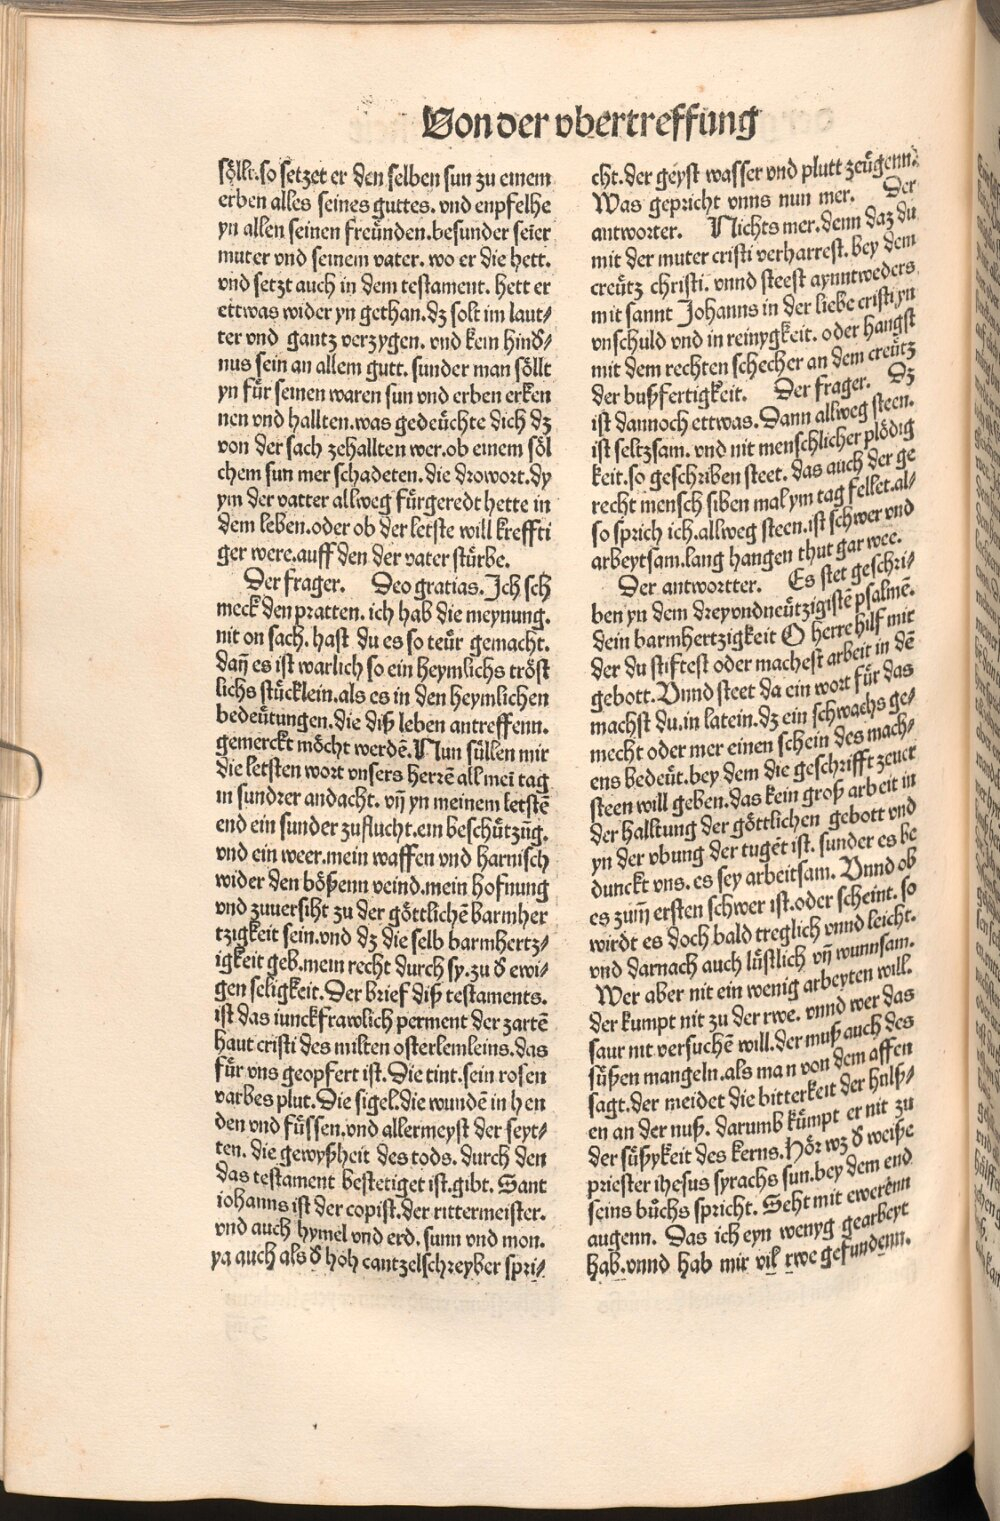 Von der vbertreffung
söllt. so setzet er den selben sun zu einem
erben alles seines guttes. vnd enpfelhe
yn allen seinen freünden. besunder seier
muter vnd seinem vater. wo er die hett.
vnd setzt auch in dem testament. hett er
ettwas wider yn gethan. dz solt im laut⸗
ter vnd gantz verzygen. vnd kein hindᷣ⸗
nus sein an allem gutt. sunder man söllt
yn für seinen waren sun vnd erben erken
nen vnd hallten. was gedeüchte dich dz
von der sach zehallten wer. ob einem söl
chem sun mer schadeten. die drowort. dy
ym der vatter allweg fürgeredt hette in
dem leben. oder ob der letste will kreffti
ger were. auff den der vater stürbe.
Der frager. Deo gratias. Ich sch
meck den pratten. ich hab die meynung.
nit on sach. hast du es so teür gemacht.
dañ es ist warlich so ein heymlichs tröst
lichs stücklein. als es in den heymlichen
bedeütungen. die diß leben antreffenn.
gemerckt möcht werdē. Nun süllen mir
die letsten wort vnsers herrē all mei tag
in sundrer andacht. vñ yn meinem letstē
end ein sunder zuflucht. ein beschützūg.
vnd ein weer. mein waffen vnd harnisch
wider den bößenn veind. mein hofnung
vnd zuuersiht zu der göttlichē barmher
tzigkeit sein. vnd dz die selb barmhertz⸗
igkeit geb. mein recht durch sy. zu dᷣ ewi⸗
gen seligkeit. Der brief diß testaments.
ist das iunckfrawlich perment der zartē
haut cristi des milten osterlemleins. das
für vns geopfert ist. Die tint. sein rosen
varbes plut. Die sigel. die wundē in hen
den vnd füssen. vnd allermeyst der seyt⸗
ten. die gewyßheit des tods. durch den
das testament bestetiget ist. gibt. Sant
iohanns ist der copist. der rittermeister.
vnd auch hymel vnd erd. sunn vnd mon.
ya auch als dᷣ hoh cantzelschreyber spri⸗
cht. der geyst wasser vnd plutt zeügenn.
Was gepricht vnns nun mer. Der
antworter. Nichts mer. denn daz du
mit der muter cristi verharrest. bey dem
creütz christi. vnnd steest aynntweders
mit sannt Johanns in der liebe cristi yn
vnschuld vnd in reinygkeit. oder hangst
mit dem rechten schecher an dem creütz
der bußfertigkeit. Der frager. Dz
ist dannoch ettwas. Dann allweg steen.
ist seltzsam. vnd nit menschlicher plödig
keit. so geschriben steet. das auch der ge
recht mensch siben mal ym tag fellet. al⸗
so sprich ich. allweg steen. ist schwer vnd
arbeytsam. lang hangen thut gar wee.
Der antwortter. Es stet geschri⸗
ben yn dem dreyvndneützigistē psalmē.
dein barmhertzigkeit O herre hilf mir
der du stiftest oder machest arbeit in dē
gebott. Vnnd steet da ein wort für das
machst du. in latein. dz ein schwachs ge⸗
mecht oder mer einen schein des mach⸗
ens bedeüt. bey dem die geschrifft zeuer
steen will geben. das kein groß arbeit in
der halltung der göttlichen gebott vnd
yn der vbung der tugēt ist. sunder es be
dunckt vns. es sey arbeitsam. Vnnd ob
es zum̄ ersten schwer ist. oder scheint. so
wirdt es doch bald treglich vnnd leicht.
vnd darnach auch lüstlich vñ wunnsam.
Wer aber nit ein wenig arbeyten will.
der kumpt nit zu der rwe. vnnd wer das
saur nit versuchē will. der muß auch des
süßen mangeln. als man von dem affen
sagt. der meidet die bitterkeit der hülß⸗
en an der nuß. darumb kümpt er nit zu
der süßykeit des kerns. Hör wz dᷣ weiße
priester ihesus syrachs sun. bey dem end
seins bůchs spricht. Seht mit ewerēnn
augenn. Das ich eyn wenyg gearbeyt
hab. vnnd hab mir vil rwe gefundenn.